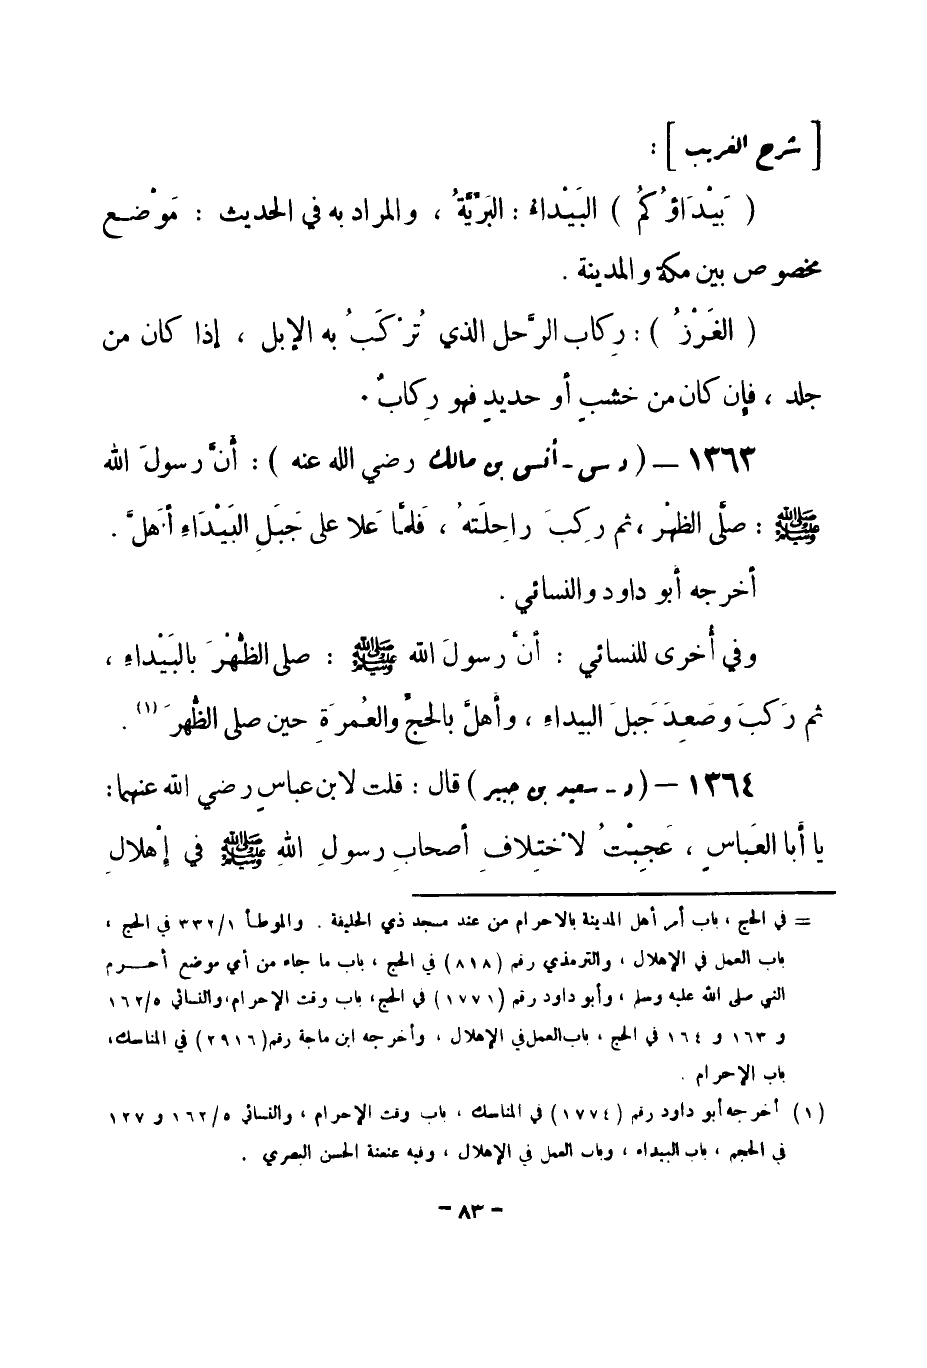 [ شرح الغريب ] :
( بَيْدَاؤُكُمْ ) البَيْداءُ : البَرِّيَّةُ ، والمراد به في الحديث : مَوْضع
مخصوص بين مكة والمدينة .
( الغَرْزُ ) : رِكاب الرَّحل الذي تُرْكَبُ به الإبل ، إذا كان من
جلد ، فإن كان من خشبٍ أو حديدٍ فهو رِكابٌ .
١٣٦٣ – ( د س - أنس بن مالك رضي الله عنه ) : أنَّ رسولَ الله
ﷺ : صلَّى الظهْر ، ثم ركِبَ راحِلَتهُ ، فَلمَّا عَلا على جَبَلِ البَيْدَاءِ أَهَلَّ .
أخرجه أبو داود والنسائي .
وفي أُخرى للنسائي : أنَّ رسولَ الله ﷺ : صلى الظُهْرَ بالبَيْداءِ ،
ثم رَكبَ وصَعِدَ جَبلَ البيداءِ ، وأهلَّ بالحجِّ والعُمرَةِ حين صلى الظُّهرَ (١) .
١٣٦٤ – ( د - سعيد بن جبير ) قال : قلت لابن عباسٍ رضي الله عنهما :
يا أبا العَباسِ ، عَجِبْتُ لاخْتِلافِ أصحابِ رسولِ اللهِ ﷺ في إهْلالِ
= في الحج ، باب أمر أهل المدينة بالاحرام من عند مسجد ذي الحليفة . والموطأ ٣٣٢/١ في الحج ،
باب العمل في الإهلال ، والترمذي رقم (٨١٨) في الحج ، باب ما جاء من أي موضع أحرم
النبي صلى الله عليه وسلم ، وأبو داود رقم (١٧٧١) في الحج ، باب وقت الإحرام ، والنسائي ١٦٢/٥
و ١٦٣ و ١٦٤ في الحج ، باب العمل في الإهلال ، وأخرجه ابن ماجة رقم (٢٩١٦) في المناسك ،
باب الإحرام .
(١) أخرجه أبو داود رقم (١٧٧٤) في المناسك ، باب وقت الإحرام ، والنسائي ١٦٢/٥ و ١٢٧
في الحج ، باب البيداء ، وباب العمل في الإهلال ، وفيه عنعنة الحسن البصري .
- ٨٣ -